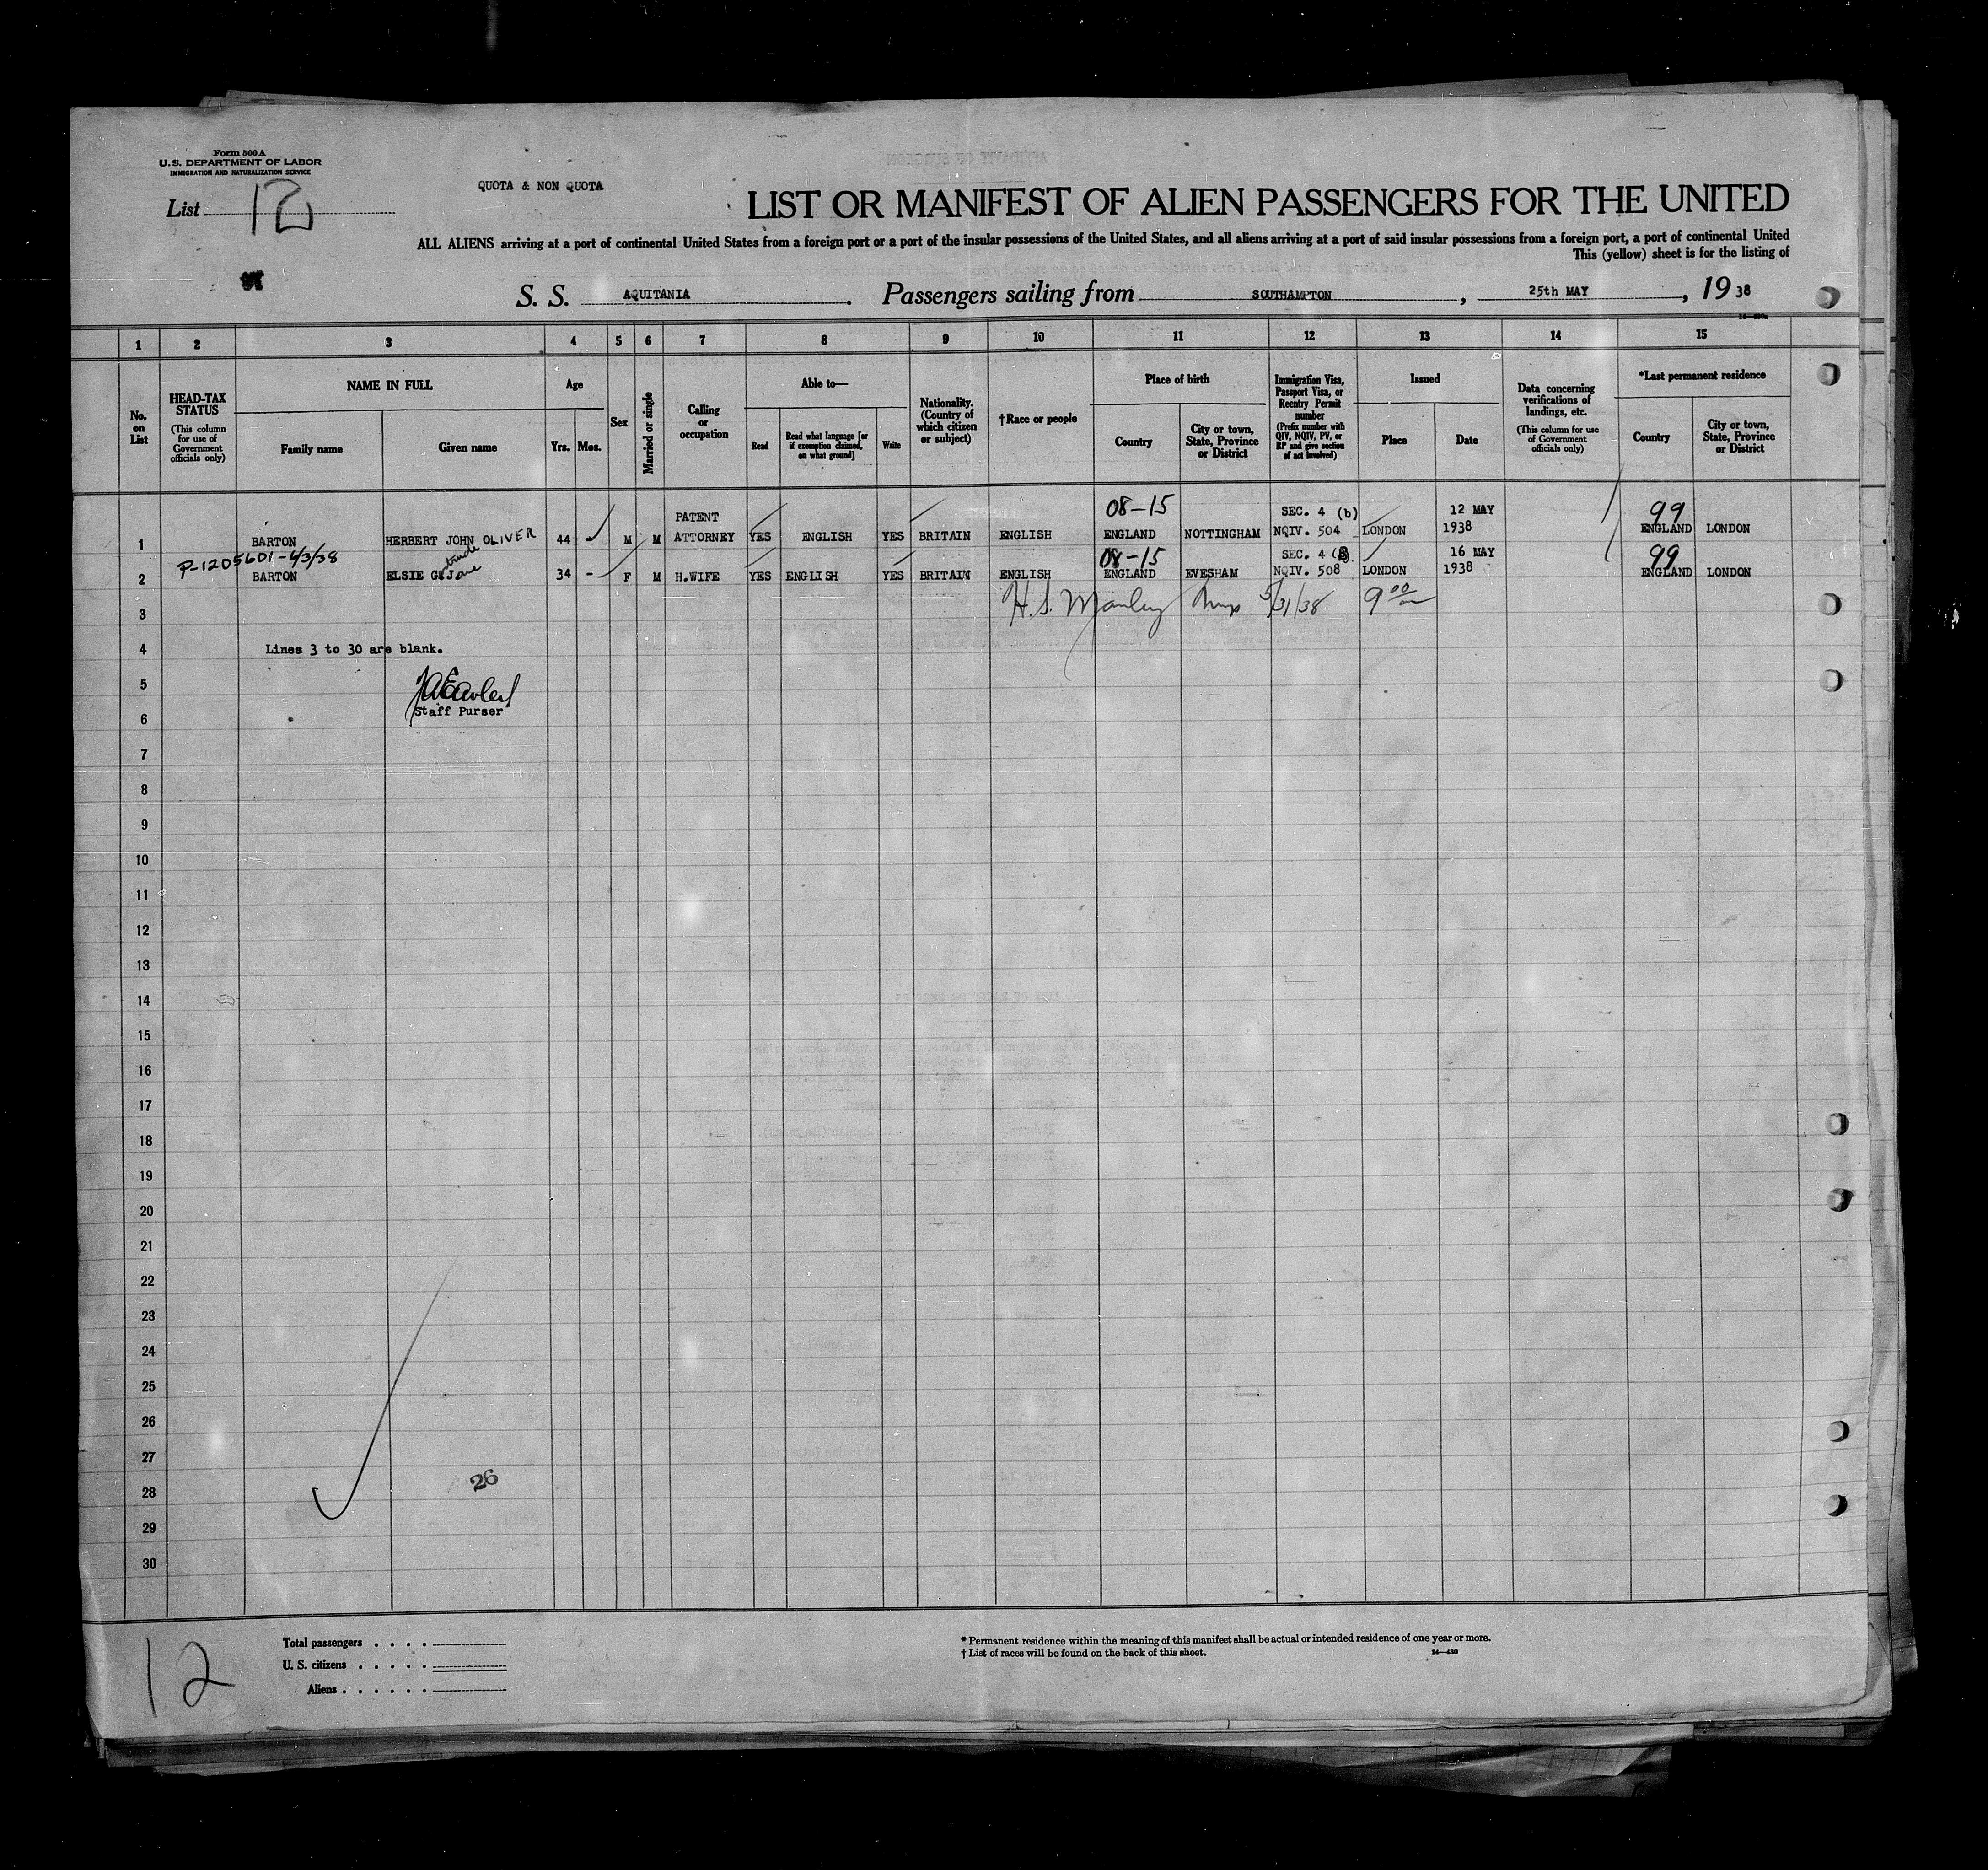 Form 500 A
U.S. DEPARTMENT OF LABOR
IMMIGRATION AND NATURALIZATION SERVICE
QUOTA & NON QUOTA
List 12
LIST OR MANIFEST OF ALIEN PASSENGERS FOR THE UNITED
ALL ALIENS arriving at a port of continental United States from a foreign port or a port of the insular possessions of the United States, and all aliens arriving at a port of said insular possessions from a foreign port, a port of continental United
This (yellow) sheet is for the listing of
S. S. AQUITANIA. Passengers sailing from SOUTHAMPTON, 25th MAY, 1938
1 2 3 4 5 6 7 8 9 10 11 12 13 14 15
No. on List
HEAD-TAX STATUS
(This column for use of Government officials only)
NAME IN FULL
Family name
Given name
Age
Yrs. Mos.
Sex
Married or single
Calling or occupation
Able to—
Read
Read what language [or if exemption claimed, on what ground]
Write
Nationality. (Country of which citizen or subject)
†Race or people
Place of birth
Country
City or town, State, Province or District
Immigration Visa, Passport Visa, or Reentry Permit number
(Prefix number with QIV, NQIV, PV, or RP and give section of act involved)
Issued
Place
Date
Data concerning verifications of landings, etc.
(This column for use of Government officials only)
*Last permanent residence
Country
City or town, State, Province or District
08-15 SEC. 4 (b) 12 MAY 99
1 BARTON HERBERT JOHN OLIVER 44 M M PATENT ATTORNEY YES ENGLISH YES BRITAIN ENGLISH ENGLAND NOTTINGHAM NQIV. 504 LONDON 1938 ENGLAND LONDON
P-1205601-6/3/38 08-15 SEC. 4 16 MAY 99
2 BARTON ELSIE G. Jane 34 - F M H.WIFE YES ENGLISH YES BRITAIN ENGLISH ENGLAND EVESHAM NQIV. 508 LONDON 1938 ENGLAND LONDON
3 H. S. Manley 5/31/38 9 00
4 Lines 3 to 30 are blank.
5
Staff Purser
6
7
8
9
10
11
12
13
14
15
16
17
18
19
20
21
22
23
24
25
26
27
26
28
29
30
12
Total passengers . . . .
U. S. citizens . . . . .
Aliens . . . . . .
* Permanent residence within the meaning of this manifest shall be actual or intended residence of one year or more.
† List of races will be found on the back of this sheet.
14—430